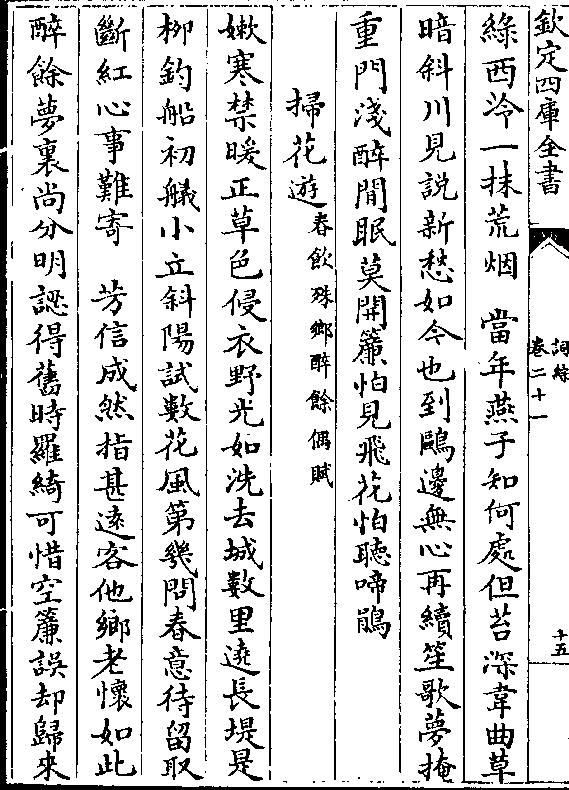 欽定四庫全書
詞綜
卷二十一
十五
綠西泠一抹荒烟　當年燕子知何處但苔深韋曲草
暗斜川見說新愁如今也到鷗邊無心再續笙歌夢掩
重門淺醉閒眠莫開簾怕見飛花怕聽啼鵑
掃花遊春飲殊鄉醉餘偶賦
嫰寒禁暖正草色侵衣野光如洗去城數里遶長堤是
栁釣船初艤小立斜陽試數花風第幾問春意待留取
斷紅心事難寄　芳信成然指甚遠客他鄉老懷如此
醉餘夢裏尚分明認得舊時羅綺可惜空簾誤却歸來